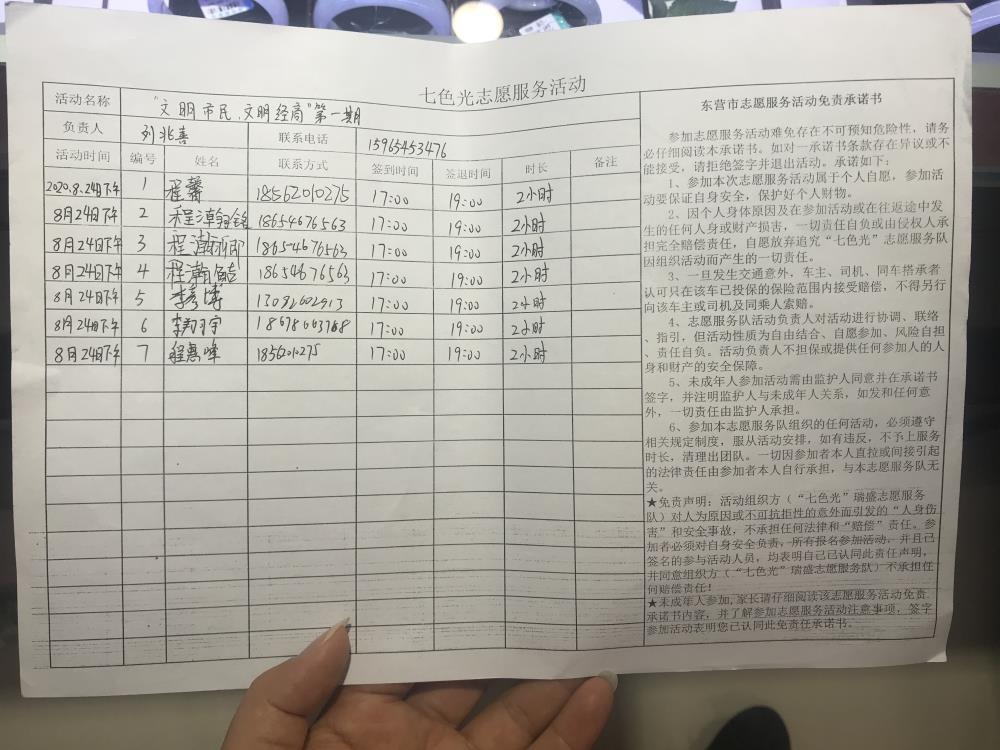 七色光志愿服务活动
活动名称 "文明市民、文明经商"第一期
负责人 刘兆善 联系电话 15965453476
活动时间 编号 姓名 联系方式 签到时间 签退时间 时长 备注
2020.8.24日下午 1 程馨 18562010275 17:00 19:00 2小时
8月24日下午 2 程漳翎铭 18654676563 17:00 19:00 2小时
8月24日下午 3 程瀚 18654676563 17:00 19:00 2小时
8月24日下午 4 程瀚皓 18654676563 17:00 19:00 2小时
8月24日下午 5 李彦博 17:00 19:00 2小时
8月24日下午 6 李翔宇 17:00 19:00 2小时
8月24日下午 7 程惠峰 17:00 19:00 2小时
东营市志愿服务活动免责承诺书
参加志愿服务活动难免存在不可预知危险性，请务
必仔细阅读本承诺书。如对一承诺书条款存在异议或不
能接受，请拒绝签字并退出活动。承诺如下：
1、参加本次志愿服务活动属于个人自愿，参加活
动要保证自身安全，保护好个人财物。
2、因个人身体原因及在参加活动或在往返途中发
生的任何人身或财产损害，一切责任自负或由侵权人承
担完全赔偿责任，自愿放弃追究“七色光”志愿服务队
因组织活动而产生的一切责任。
3、一旦发生交通意外，车主、司机、同车搭承者
认可只在该车已投保的保险范围内接受赔偿，不得另行
向该车主或司机及同乘人索赔。
4、志愿服务队活动负责人对活动进行协调、联络
、指引，但活动性质为自由结合、自愿参加、风险自担
、责任自负。活动负责人不担保或提供任何参加人的人
身和财产的安全保障。
5、未成年人参加活动需由监护人同意并在承诺书
签字，并注明监护人与未成年人关系，如发和任何意
外，一切责任由监护人承担。
6、参加本志愿服务队组织的任何活动，必须遵守
相关规定制度，服从活动安排，如有违反，不予上服务
时长，清理出团队。一切因参加者本人直拉或间接引起
的法律责任由参加者本人自行承担，与本志愿服务队无
关。
★免责声明：活动组织方（“七色光”瑞盛志愿服务
队）对人为原因或不可抗拒性的意外而引发的“人身伤
害”和安全事故，不承担任何法律和“赔偿”责任。参
加者必须对自身安全负责，所有报名参加活动，并且已
签名的参与活动人员，均表明自己已认同此责任声明，
并同意组织方（“七色光”瑞盛志愿服务队）不承担任
何赔偿责任！
★未成年人参加，家长请仔细阅读该志愿服务活动免责
承诺书内容，并了解参加志愿服务活动注意事项，签字
参加活动表明您已认同此免责任承诺书。